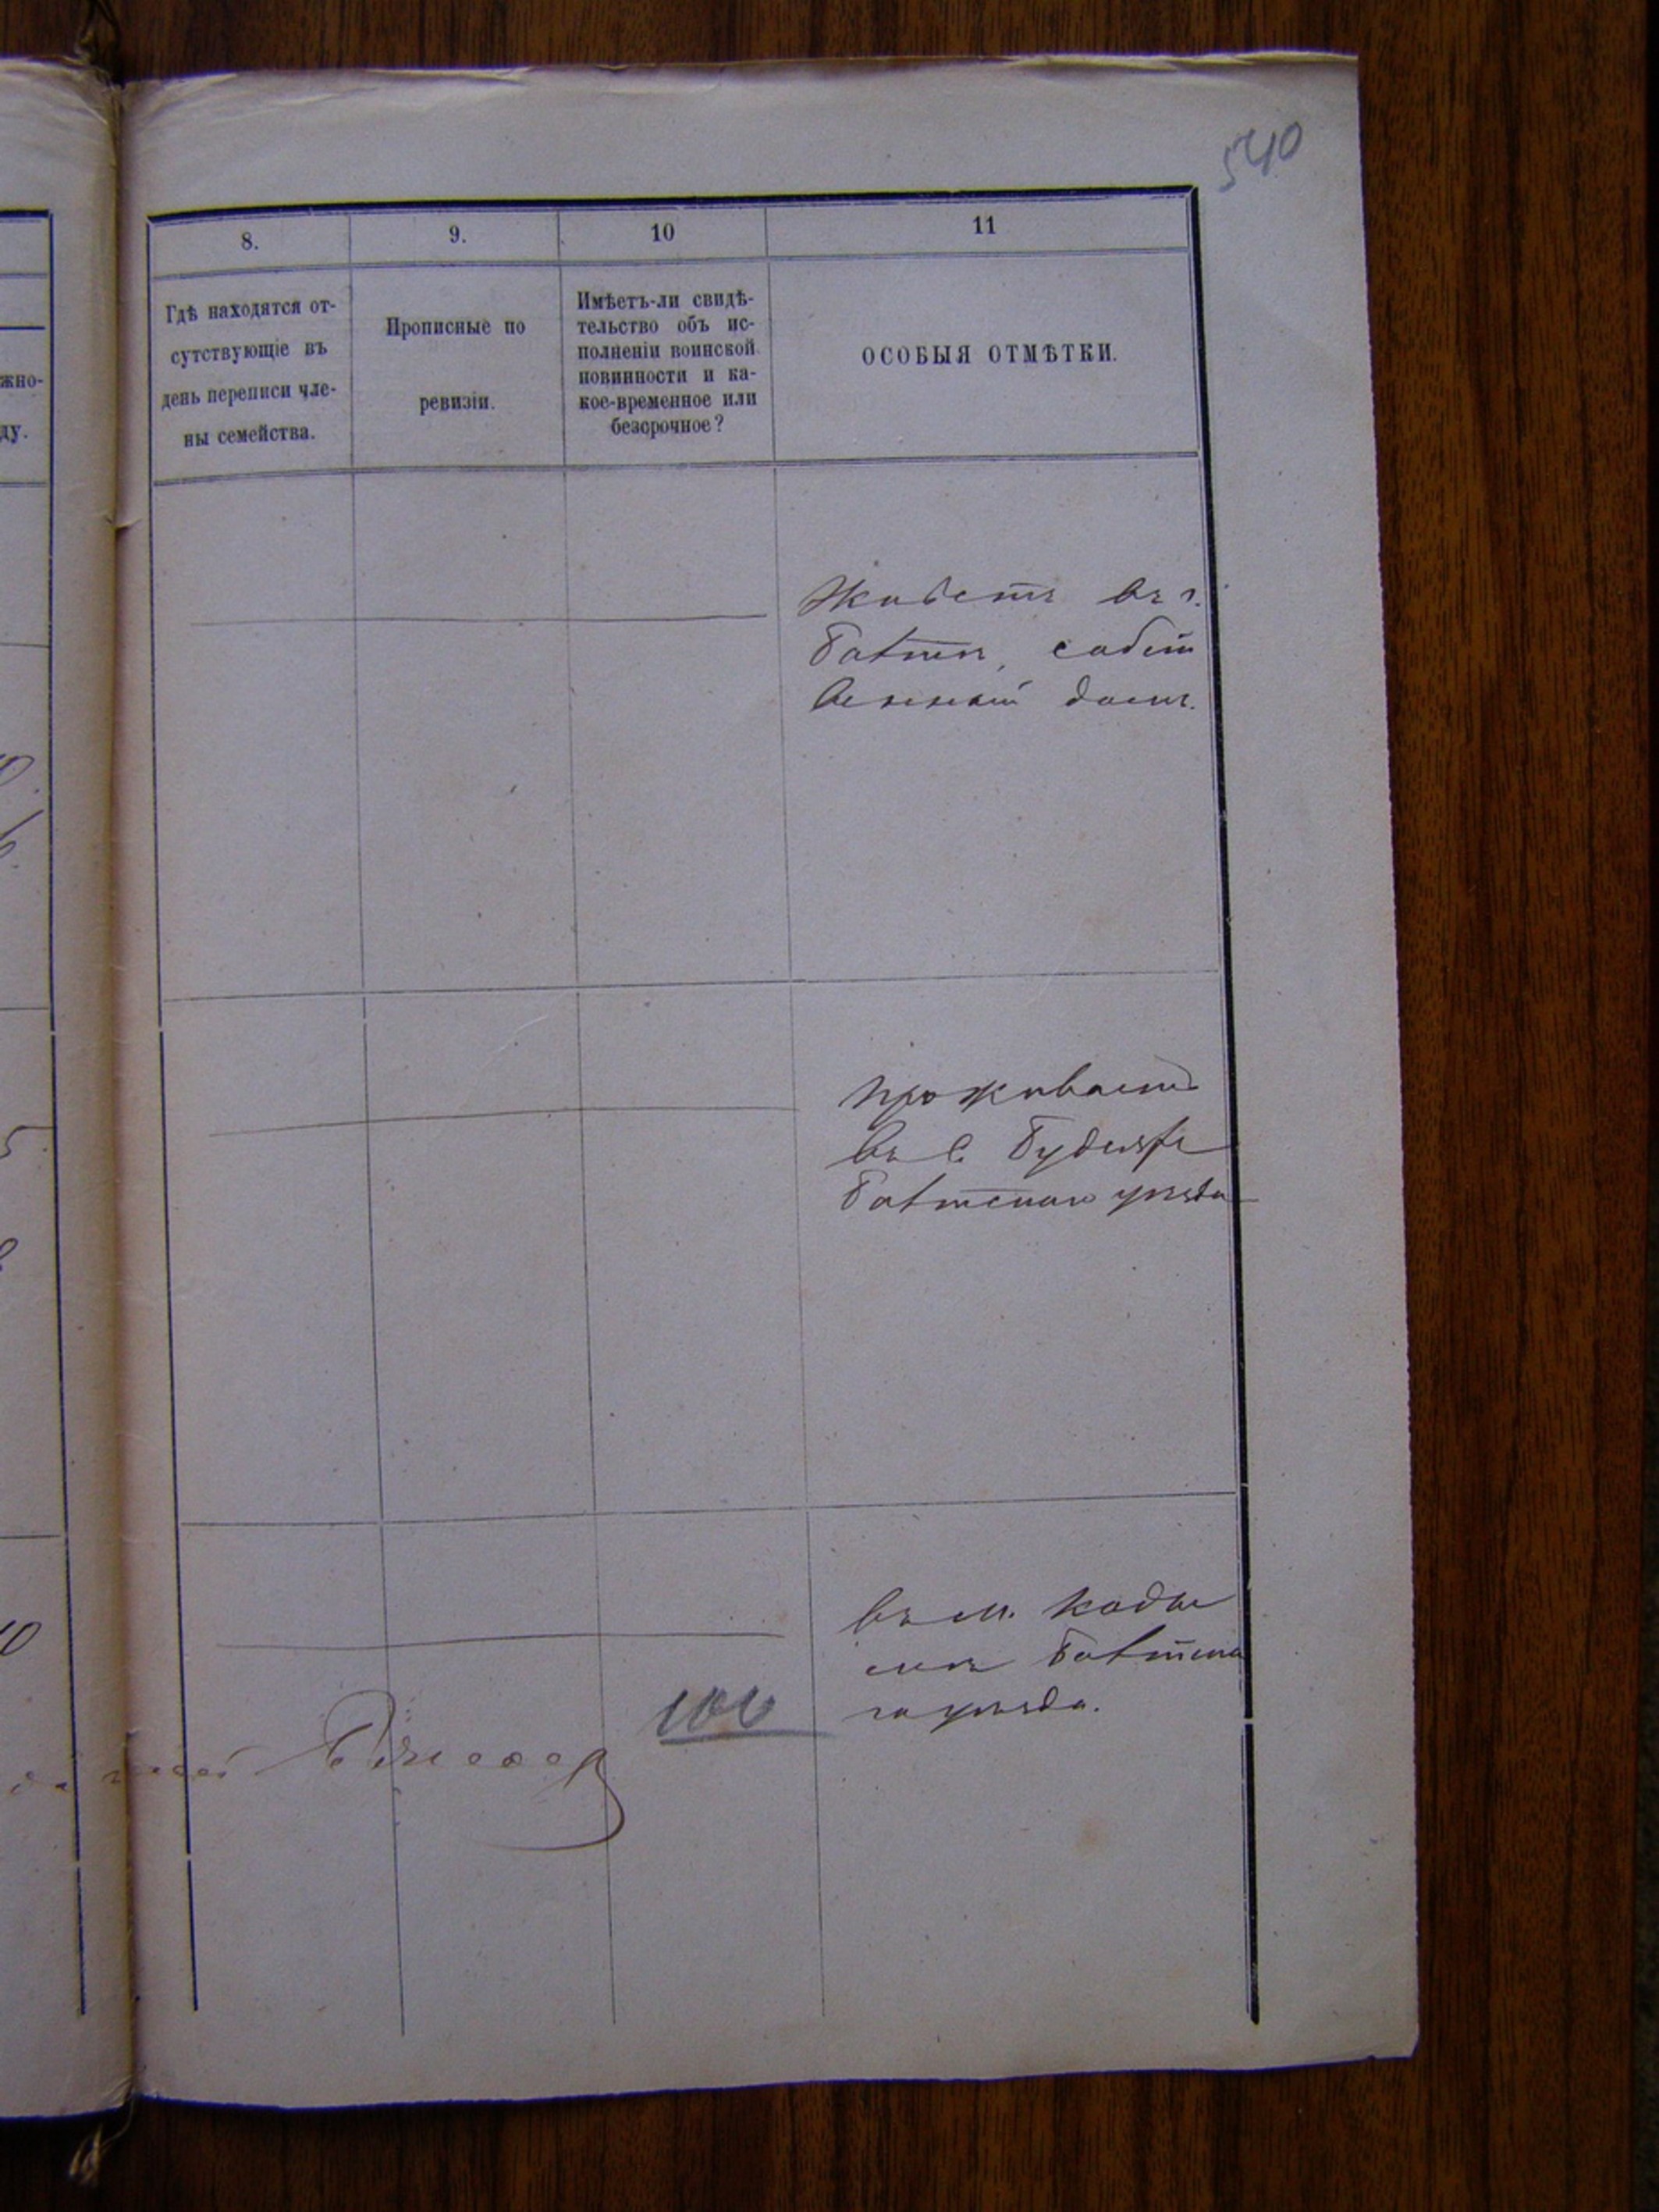 540
жно-
ду.
8.
9.
10
11
Гдѣ находятся от-
сутствующіе въ
день переписи чле-
ны семейства.
Прописные по
ревизіи.
Имѣетъ-ли свидѣ-
тельство объ ис-
полненіи воинской
повинности и ка-
кое-временное или
безсрочное?
ОСОБЫЯ ОТМѢТКИ.
Живетъ въ г.
Балтѣ, собст
венный домъ.
проживаетъ
въ с.
Балтскаго уѣзда
въ м. Коды
мѣ Балтска
го уѣзда.
10